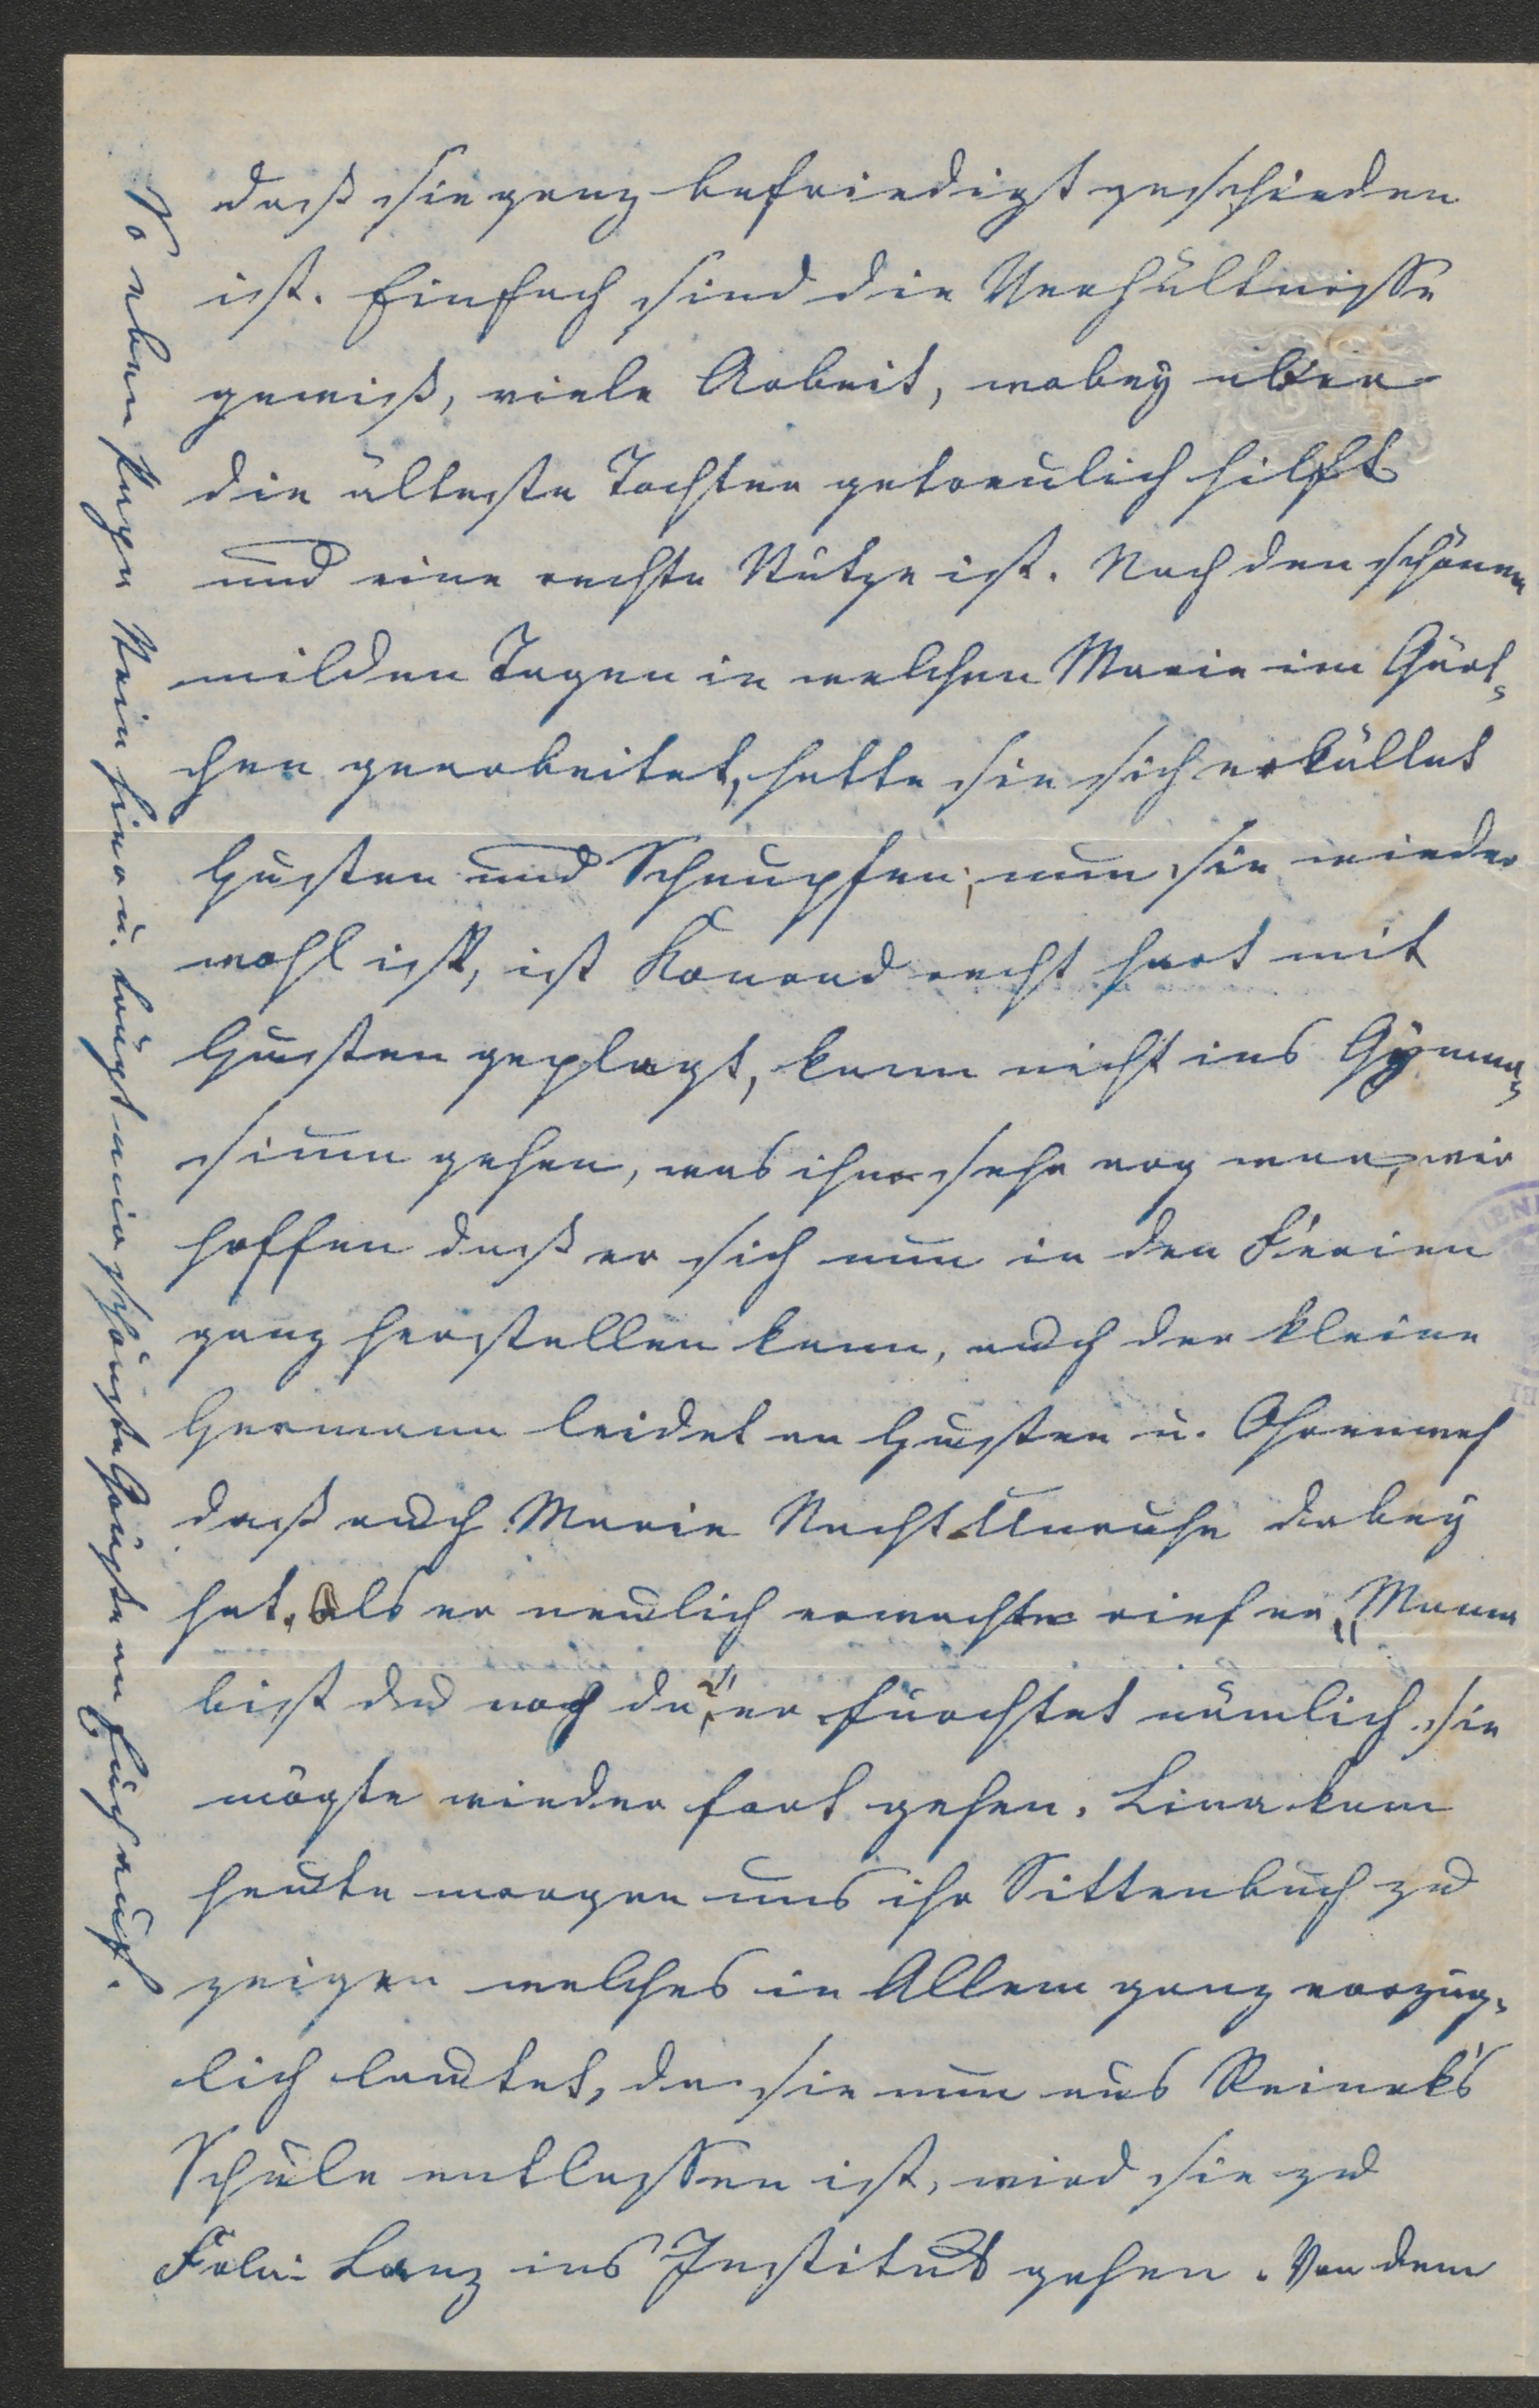 daß sie ganz befriedigt geschieden
ist. Einfach sind die Verhältnisse
gewiß, viele Arbeit, wobey aber
die älteste Tochter getreulich hilft
und eine rechte Stütze ist. Nach den schönen
milden Tagen in welchen Marie im Gärt-
chen gearbeitet, hatte sie sich erkältet
Husten und Schnupfen; nun sie wieder
wohl ist, ist Konrad recht hart mit
Husten geplagt, kann nicht ins Gymna-
sium gehen, was ihm sehr arg war, wir
hoffen daß er sich nun in den Ferien
ganz herstellen kann, auch der kleine
Hermann leidet an Husten u. Ohrenweh
daß auch Marie Nacht Unruhe dabey
hat. Als er neulich erwachte rief er „Mama
bist du noch da?" er fürchtet nämlich sie
mögte wieder fort gehen. Lina kam
heute morgen uns ihr Sittenbuch zu
zeigen welches in Allem ganz vorzüg-
lich lautet, da sie nun aus Reineks
Schule entlassen ist, wird sie zu
Frln. Lanz ins Institut gehen. Von dem
So eben kam Stein hier u. trägt mir schönste Grüße an Euch auf.